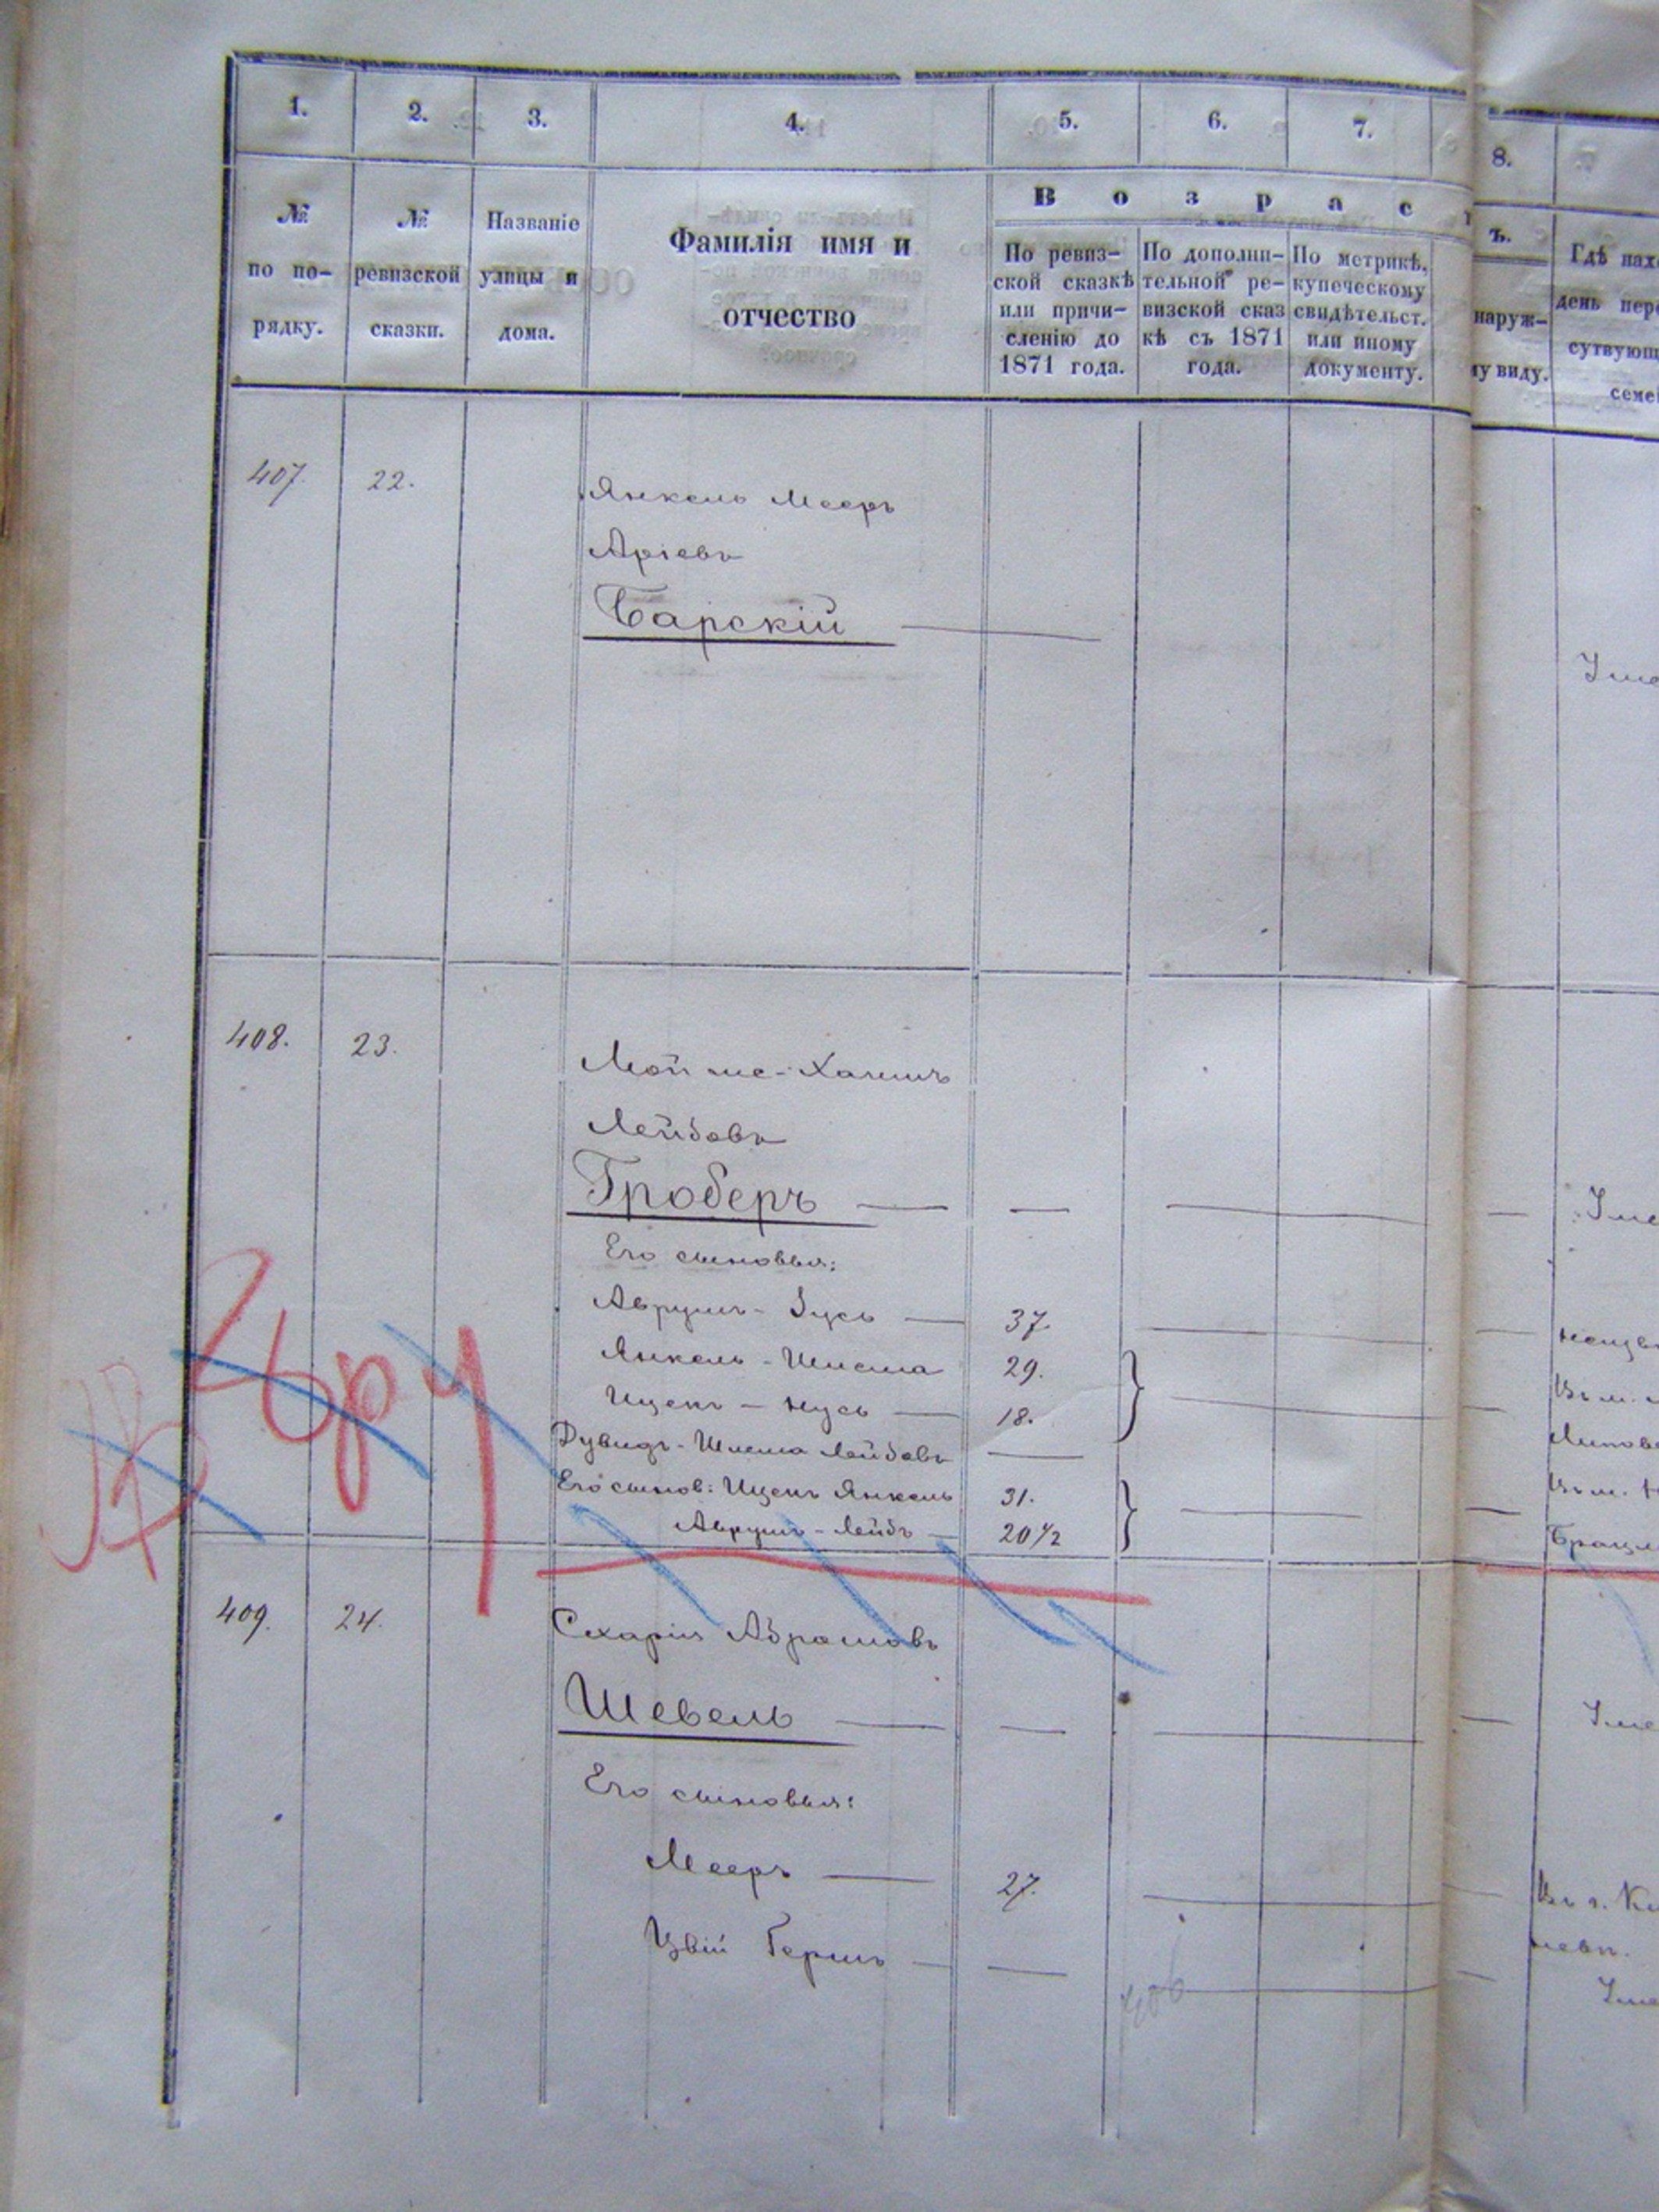 1. 2. 3. 4. 5. 6. 7. 8.
№ по порядку.
№ ревизской сказки.
Названіе улицы и дома.
Фамилія имя и отчество
Возрастъ.
По ревиз-
ской сказкѣ
или причи-
сленію до
1871 года.
По дополни-
тельной ре-
визской сказ
кѣ съ 1871
года.
По метрикѣ,
купеческому
свидѣтельст.
или иному
документу.
наруж-
му виду.
Гдѣ нахо
день пер
сутвующ
семе
407. 22. Янкель Мееръ
Аріевъ
Барскій
408. 23. Мойше-Хаимъ
Лейбовъ
Гроберъ
Его сыновья:
Аврумъ - Зусь 37.
Янкель - Шлема 29.
Ицекъ - Нусь 18.
Дувидъ - Шлема Лейбовъ
Его сынов: Ицекъ Янкель 31.
Аврумъ - Лейбъ 20 1/2
409. 24. Сахарія Абрамовъ
Шевель
Его сыновья:
Мееръ 27.
Цвій Гершъ